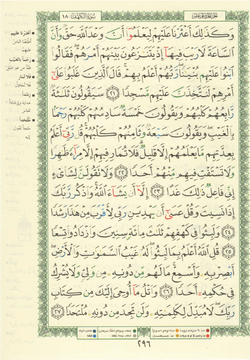 سُورَةُ الكَهْفِ ١٨
وَكَذَٰلِكَ أَعْثَرْنَا عَلَيْهِمْ لِيَعْلَمُوٓا۟ أَنَّ وَعْدَ ٱللَّهِ حَقٌّ وَأَنَّ
ٱلسَّاعَةَ لَا رَيْبَ فِيهَآ إِذْ يَتَنَٰزَعُونَ بَيْنَهُمْ أَمْرَهُمْ فَقَالُوا۟
ٱبْنُوا۟ عَلَيْهِم بُنْيَٰنًا رَّبُّهُمْ أَعْلَمُ بِهِمْ قَالَ ٱلَّذِينَ غَلَبُوا۟ عَلَىٰٓ
أَمْرِهِمْ لَنَتَّخِذَنَّ عَلَيْهِم مَّسْجِدًا ٢١ سَيَقُولُونَ ثَلَٰثَةٌ
رَّابِعُهُمْ كَلْبُهُمْ وَيَقُولُونَ خَمْسَةٌ سَادِسُهُمْ كَلْبُهُمْ رَجْمًۢا
بِٱلْغَيْبِ وَيَقُولُونَ سَبْعَةٌ وَثَامِنُهُمْ كَلْبُهُمْ قُل رَّبِّىٓ أَعْلَمُ
بِعِدَّتِهِم مَّا يَعْلَمُهُمْ إِلَّا قَلِيلٌ فَلَا تُمَارِ فِيهِمْ إِلَّا مِرَآءً ظَٰهِرًا
وَلَا تَسْتَفْتِ فِيهِم مِّنْهُمْ أَحَدًا ٢٢ وَلَا تَقُولَنَّ لِشَا۟ىْءٍ
إِنِّى فَاعِلٌ ذَٰلِكَ غَدًا ٢٣ إِلَّآ أَن يَشَآءَ ٱللَّهُ وَٱذْكُر رَّبَّكَ
إِذَا نَسِيتَ وَقُلْ عَسَىٰٓ أَن يَهْدِيَنِ رَبِّى لِأَقْرَبَ مِنْ هَٰذَا رَشَدًا
٢٤ وَلَبِثُوا۟ فِى كَهْفِهِمْ ثَلَٰثَ مِا۟ئَةٍ سِنِينَ وَٱزْدَادُوا۟ تِسْعًا
٢٥ قُلِ ٱللَّهُ أَعْلَمُ بِمَا لَبِثُوا۟ لَهُۥ غَيْبُ ٱلسَّمَٰوَٰتِ وَٱلْأَرْضِ
أَبْصِرْ بِهِۦ وَأَسْمِعْ مَا لَهُم مِّن دُونِهِۦ مِن وَلِىٍّ وَلَا يُشْرِكُ
فِى حُكْمِهِۦٓ أَحَدًا ٢٦ وَٱتْلُ مَآ أُوحِىَ إِلَيْكَ مِن كِتَابِ
رَبِّكَ لَا مُبَدِّلَ لِكَلِمَٰتِهِۦ وَلَن تَجِدَ مِن دُونِهِۦ مُلْتَحَدًا ٢٧
٢٩٦